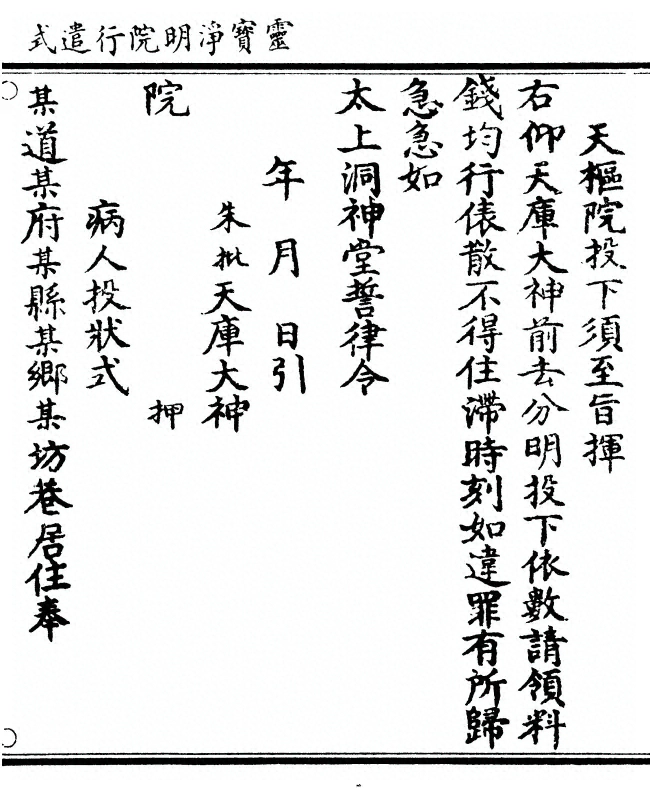 靈寶淨明院行遣式
天樞院投下須至旨揮
右仰天庫大神前去分明投下依數請領料
錢均行俵散不得住滯時刻如違罪有所歸
急急如
太上洞神堂誓律令
年月日引
朱批天庫大神
院押
病人投狀式
某道某府某縣某鄉某坊巷居住奉